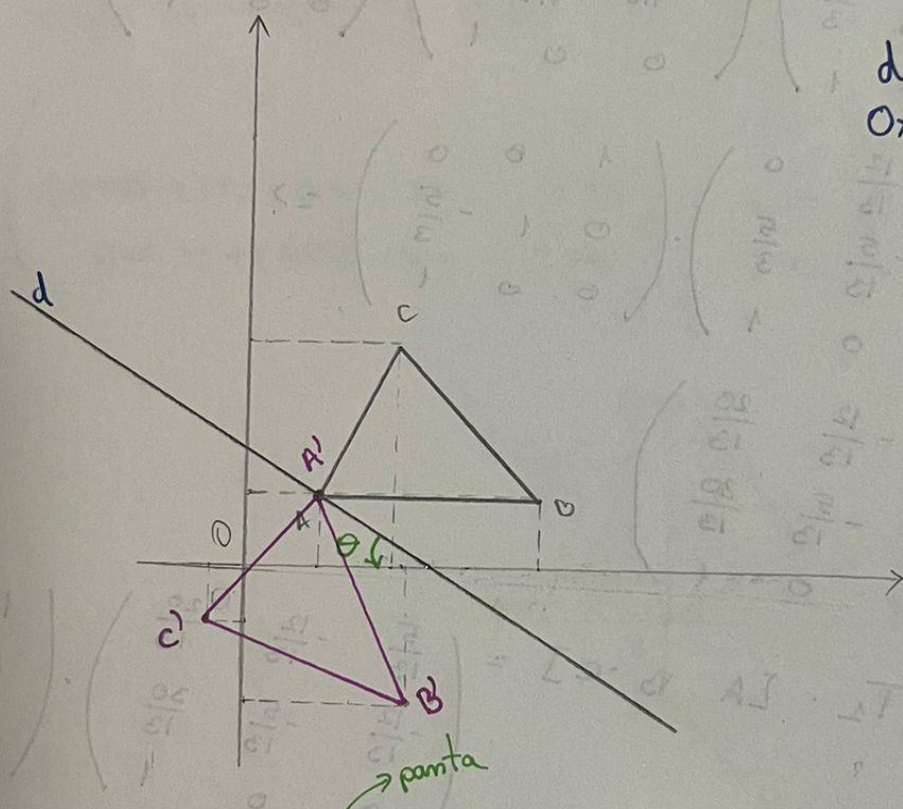 d
0x
d
C
A'
A
B
O
θ
C'
B'
panta